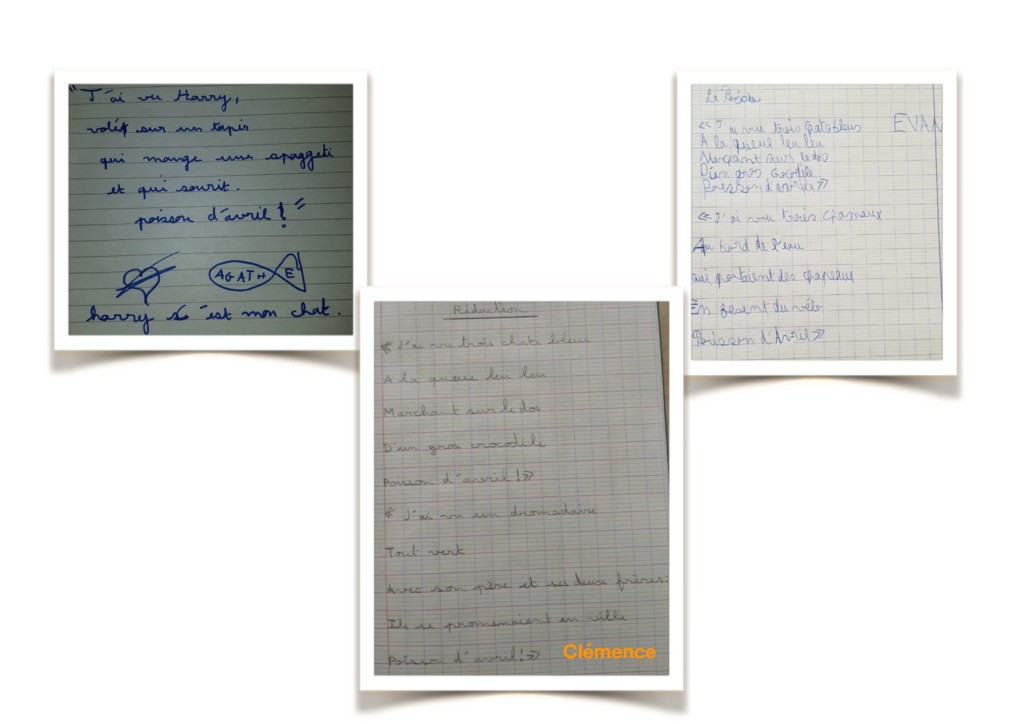 "J'ai vu Harry,
volét sur un tapis
qui mange une spaggeti
et qui sourit.
poisson d'avril !"
AGATHE
harry c'est mon chat.
Rédaction
« J'ai vu trois chats bleus
A la queue leu leu
Marchant sur le dos
D'un gros crocodile
Poisson d'avril !»
« J'ai vu un dromadaire
Tout vert
Avec son père et ses deux frères.
Ils se promenaient en ville
Poisson d'avril!»
Clémence
EVAN
« J'ai vu trois chats bleus
A la queue leu leu
Marchant sur le dos
D'un gros crocodile
Poisson d'avril»
« J'ai vu trois chameaux
Au bord de l'eau
qui portaient des chapeaux
En fesant du vélo
Poisson d'Avril»